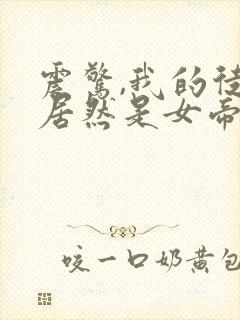 震惊,我的徒
居然是女帝
咬一口奶黄包